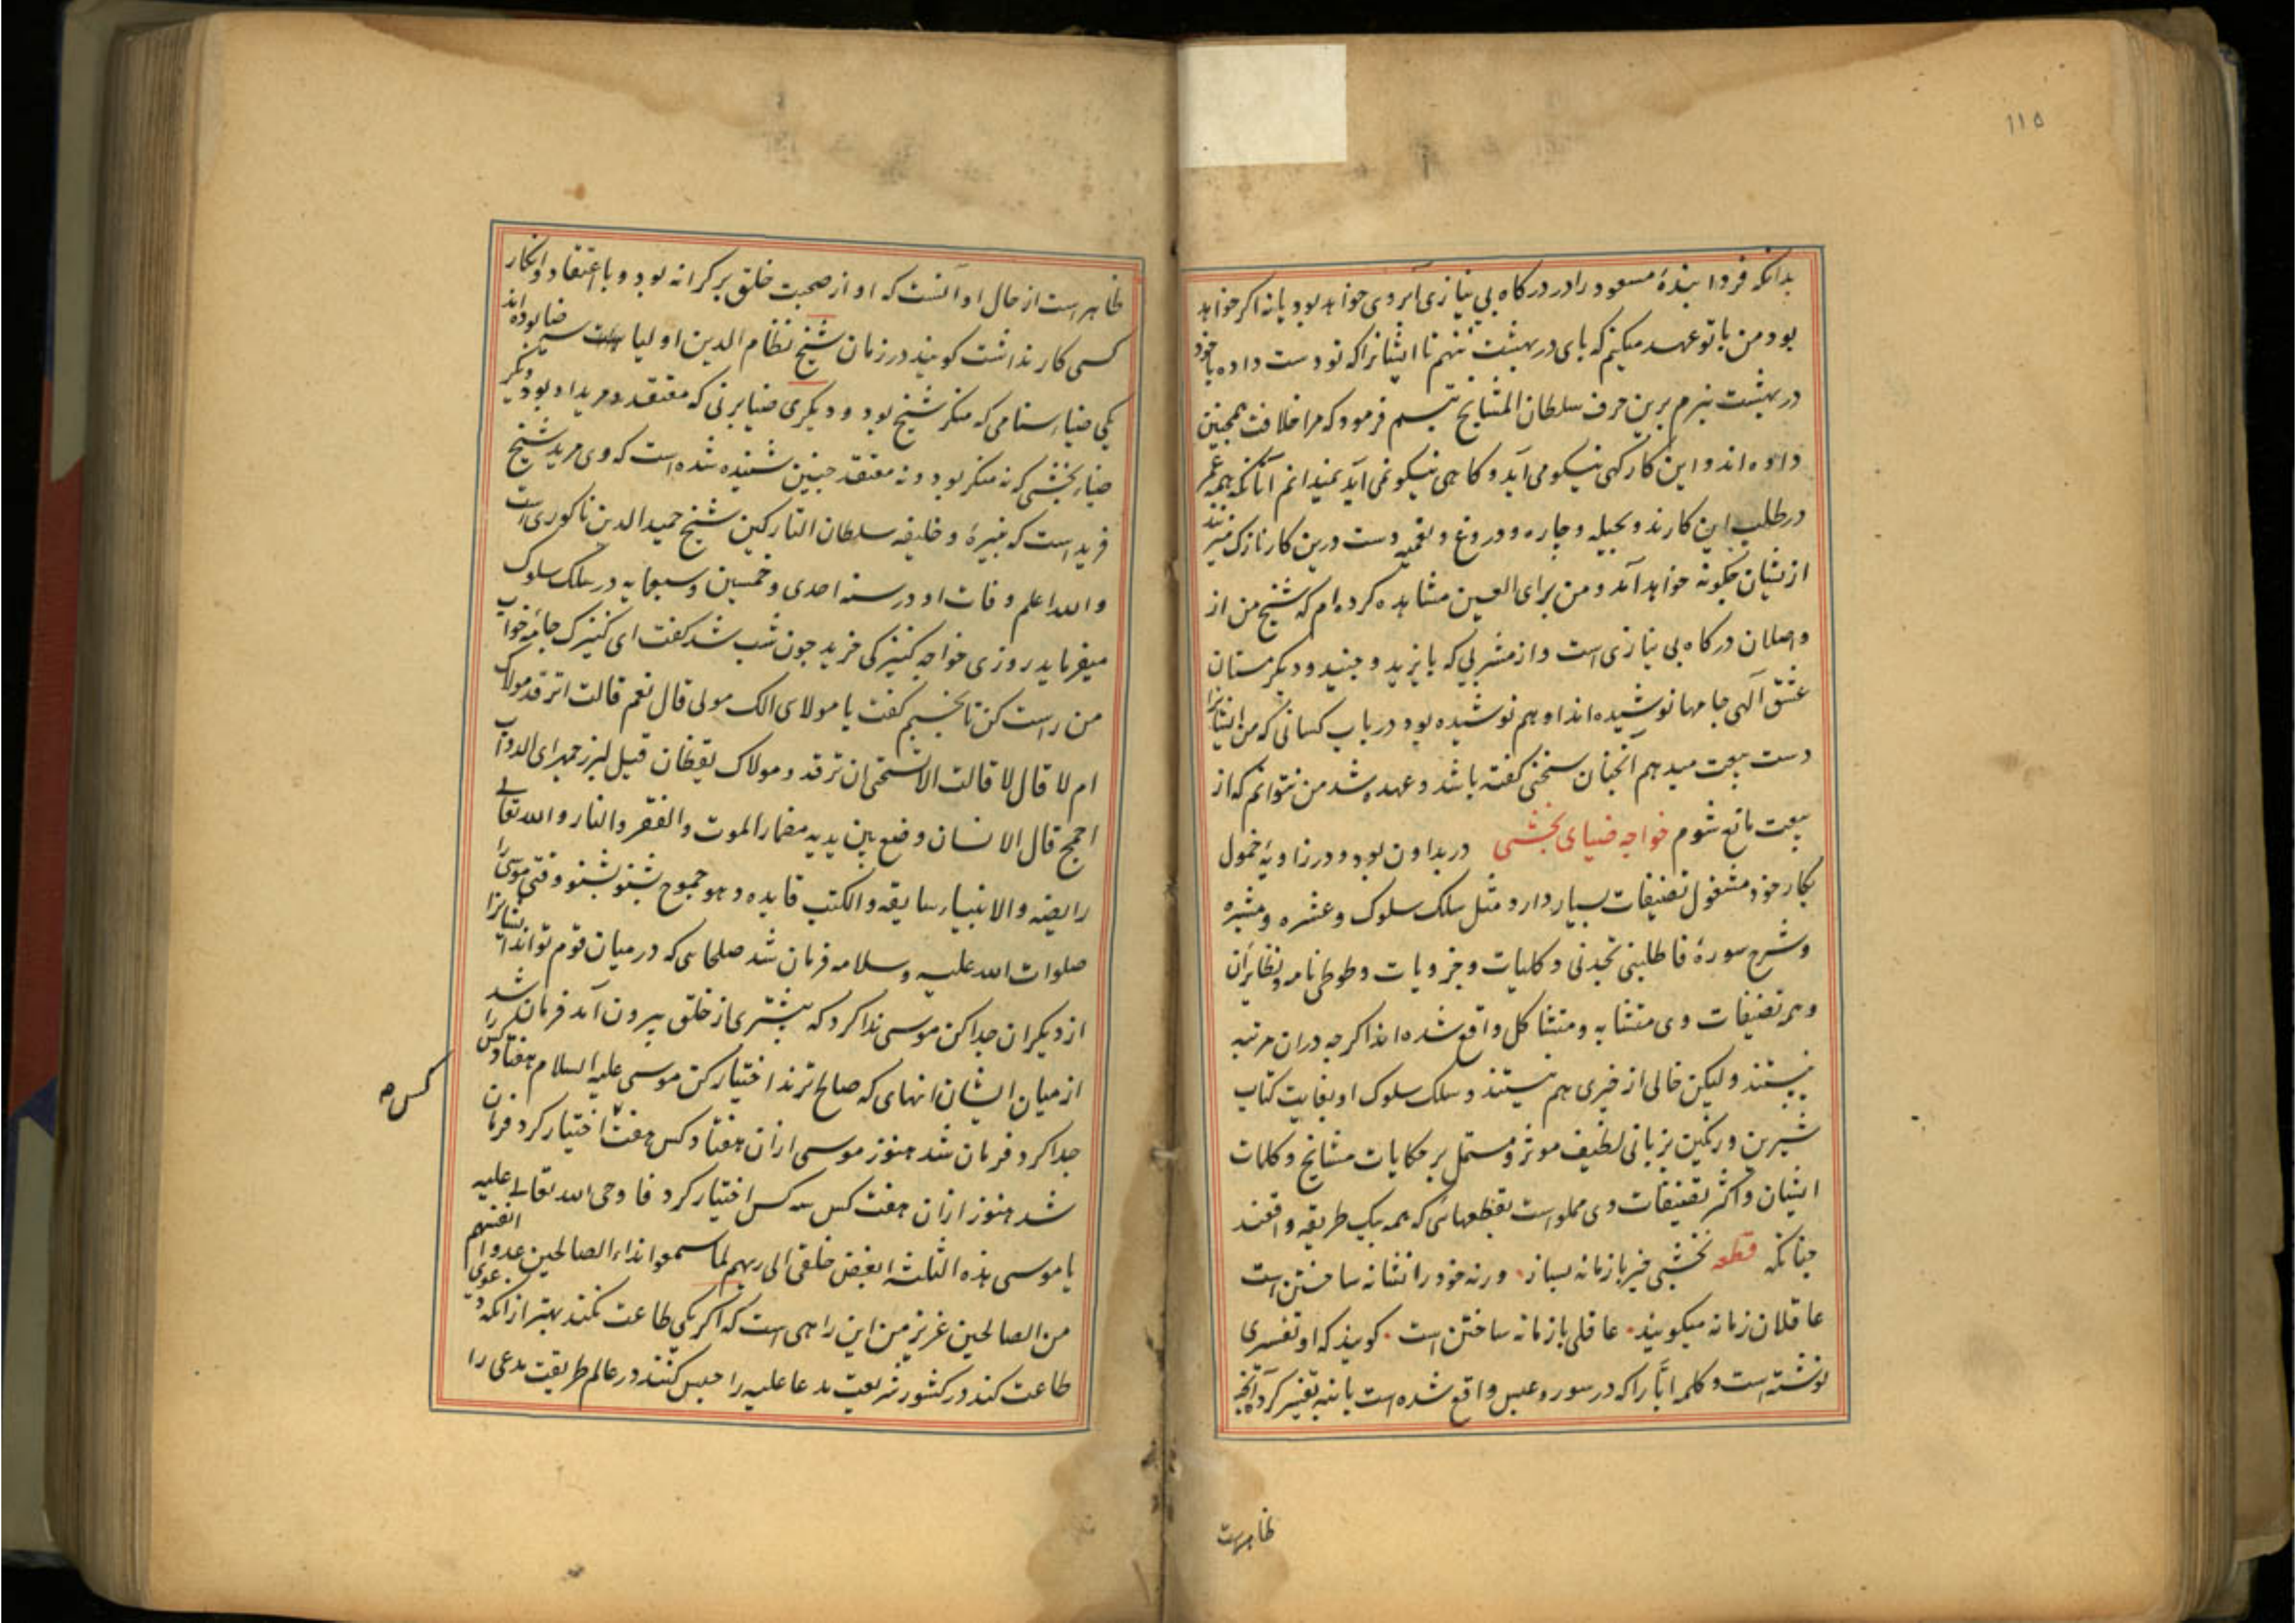 ۱۱۵
بدانکه فردا بندهٔ مسعود را در درکاه بی نیازی آبروی خواهد بود یا نه اکر خواهد
بود من با تو عهد میکنم که پای در بهشت ننهم تا ایشانرا که تو دست داده باخود
در بهشت نبرم برین حرف سلطان المشایخ تبسم فرمود که مرا خلافت همچنین
داده اند و این کار کهی نیکو می آید و کاهی نیکو نمی آید نمیدانم آنانکه همه عمر
در طلب این کارند و بحیله و چاره و دروغ و دست درین کار نازک میزنند
ازیشان چکونه خواهد آمد و من برای العین مشاهده کرده ام که شیخ من از
واصلان درکاه بی نیازی است و از مشربی که بایزید و جنید و دیکر مستان
عشق آلهی جامها نوشیده اند او هم نوشیده بود در باب کسانی که من ایشانرا
دست بیعت میدهم آنچنان سخنی کفته باشد و عهده شد من نتوانم که از
بیعت مانع شوم خواجه ضیای نخشبی در بداون بود و در زاویهٔ خمول
بکار خود مشغول تصنیفات بسیار دارد مثل سلک سلوک و عشره و مبشره
و شرح سورهٔ فاطلبنی تجدنی و کلیات و جزویات و طوطی نامه و نظایر آن
و همه تصنیفات وی متشابه و متشاکل واقع شده اند اکر چه دران مرتبه
نیستند ولیکن خالی از خیری هم نیستند و سلک سلوک او بغایت کتاب
شیرین و رنکین بزبانی لطیف موثر و مستمل بر حکایات مشایخ و کلمات
ایشان و اکثر تصنیفات وی مملو است بقطعهائی که همه بیک طریقه واقعند
چنانکه قطعه نخشبی خیز با زمانه بساز ورنه خود را نشانه ساختن است
عاقلان زمانه میکویند عاقلی بازمانه ساختن است کویند که او تفسیری
نوشته است و کلمه ابّا را که در سوره عبس واقع شده است تفسیر کرد آنچه
ظاهرست
ظاهر است از حال او آنست که او از صحبت خلق بر کرانه بود و با اعتقاد و انکار
کسی کار نداشت کویند در زمان شیخ نظام الدین اولیا سه ضیا بوده اند
یکی ضیاء سنامی که منکر شیخ بود و دیکری ضیا برنی که معتقد و مرید او بود دیکر
ضیاء نخشبی که نه منکر بود و نه معتقد چنین شنیده شده است که وی مرید شیخ
فرید است که نبیرهٔ و خلیفه سلطان التارکین شیخ حمید الدین ناکوری است
والله اعلم وفات او در سنه احدی و خمسین و سبعمایه در سلک سلوک
میفرماید روزی خواجه کنیزکی خرید چون شب شد کفت ای کنیزک جامه خواب
من راست کن تا بخسپم کفت یا مولای الک مولی قال نعم قالت اترقد مولاک
ام لا قال لا قالت الا تستحی ان ترقد و مولاک یقظان قیل لبزرجمهر ای الدواب
اجمح قال الانسان وضع بین یدیه مضمار الموت والفقر والنار والله تعالی
رایضه والانبیاء سایقه والکتب قایده و هو جموح بشنو بشنو وقتی موسی را
صلوات الله علیه و سلامه فرمان شد صلحائی که در میان قوم تواند ایشانرا
از دیکران جدا کن موسی ندا کرد که بیشتری از خلق بیرون آمد فرمان شد
از میان ایشان انهای که صالح ترند اختیار کن موسی علیه السلام هفتاد کس را
کس ۵
جدا کرد فرمان شد هنوز موسی ازان هفتاد کس هفت اختیار کرد فرمان
شد هنوز ازان هفت کس سه کس اختیار کرد فاوحی الله تعالی علیه
یا موسی هذه الثلثة ابغض خلقی الی ربهم لما سمعوا نداء الصالحین عدوا انفسهم
من الصالحین عزیز من این راهی است که اکر یکی طاعت نکند بهتر از انکه دعوی
طاعت کند در کشور شریعت مدعا علیه را حبس کنند در عالم طریقت مدعی را